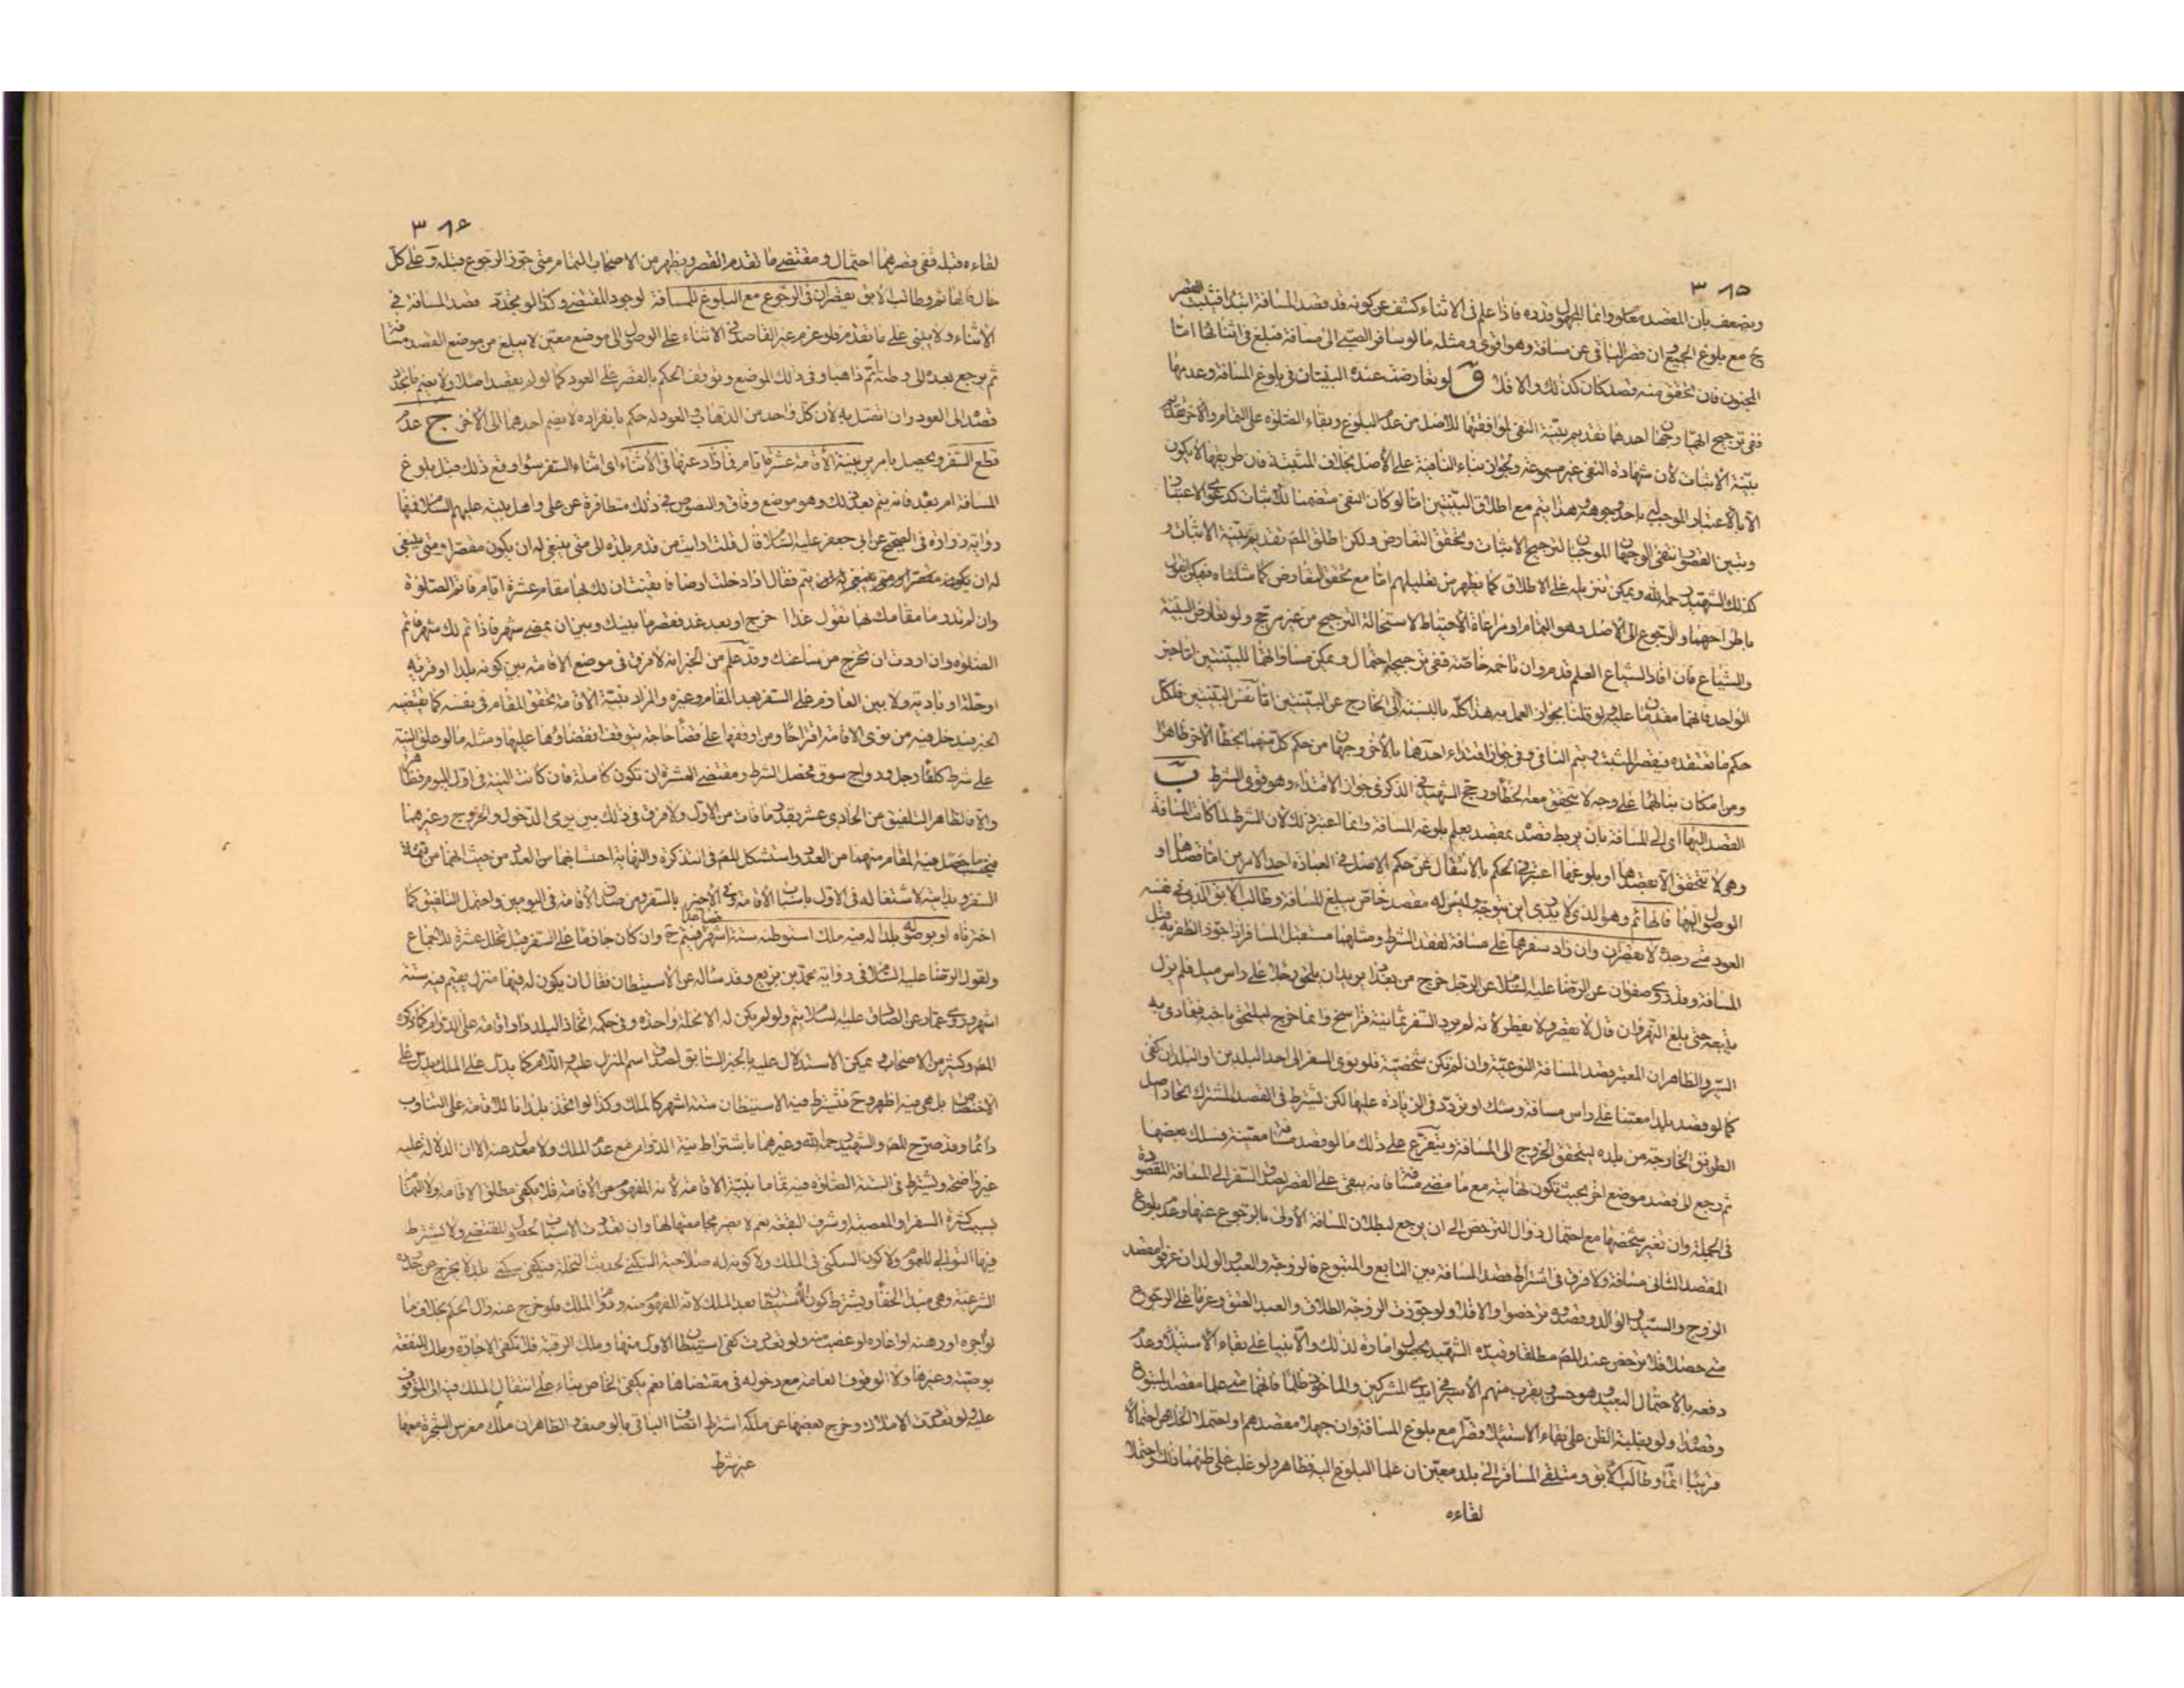 ٣٨٥
ويضعف بأن المقصد معلوم وانما المجهول قدره فاذا علم فى الاثناء كشف عن كونه قد قصد المسافة ابتداء فيثبت القصر
ح مع بلوغ الجميع وان قصر الباقى عن مسافة وهو اقوى ومثله ما لو سافر الصبى الى مسافة فبلغ فى اثنائها اما
المجنون فان تحقق منه قصد كان كذلك والا فلا لو تعارضت عنده البينتان فى بلوغ المسافة وعدمها
ففى ترجيح ايهما وجهان احدها تقديم بينة النفى لموافقتها للاصل من عدم البلوغ وبقاء الصلوة على التمام والاخر تقديم
بينة الاثبات لأن شهادة النفى غير مسموعة ولجواز بناء النافية على الاصل بخلاف المثبتة فان طريقها لا يكون
الا بالاعتبار الموجب هذا يتم مع اطلاق البينتين اما لو كان النفى متضمنا للاثبات كدعوى الاعتبار
وتبين القصور انتفى الوجهان الموجبان لترجيح الاثبات وتحقق التعارض ولكن اطلق المص تقديم بينة الاثبات و
كذلك الشهيد رحمه الله ويمكن تنزيله على الاطلاق كما يظهر من تعليلهم اما مع تحقق التعارض كما مثلناه فيمكن القول
باطراحهما والرجوع الى الاصل وهو التمام او مراعاة الاحتياط لاستحالة الترجيح من غير مرجح ولو تعارض البينة
والشياع فان افاد الشياع العلم قدم وان تاخمه خاصة ففى ترجيحه احتمال ويمكن مساواتهما للبينتين اما خبر
الواحد فانهما مقدمان عليه لو قلنا بجواز العمل به هذا كله بالنسبة الى الخارج عن البينتين اما نفس البينتين فلكل
حكم ما تعتقده فيقصر المثبت ويتم النافى وفى جواز اقتداء احدهما بالاخر وجهان من حكم كل منهما بخطأ الاخر ظاهرا
ومن امكان بنائهما على وجه لا يتحقق معه الخطأ ورجح الشهيد فى الذكرى جواز الاقتداء وهو قوى الشرط ب
القصد اليها اى الى المسافة بان يربط قصده بمقصد يعلم بلوغه المسافة وانما اعتبر ذلك لان الشرط لما كانت المسافة
وهى لا تتحقق الا بقصدها او بلوغها اعتبر فى الحكم بالانتقال عن حكم الاصل فى العبادة احد الامرين اما قصدها او
الوصول اليها فالهائم وهو الذى لا يدرى اين يتوجه وليس له مقصد خاص يبلغ المسافة وطالب الابق الذى فى نفسه
العود متى وجده لا يقصران وان زاد سفرهما على مسافة لفقد الشرط ومثلهما مستقبل المسافر اذا جوز الظفر به قبل
المسافة وقد روى صفوان عن الرضا عليه السلام عن الرجل خرج من بغداد يريد ان يلحق رجلا على راس ميل فلم يزل
يتبعه حتى بلغ النهروان قال لا يقصر ولا يفطر لأنه لم يرد السفر ثمانية فراسخ وانما خرج ليلحق باخيه فتمادى به
السير والظاهر ان المعتبر قصد المسافة النوعية وان لم تكن شخصية فلو نوى السفر الى احد البلدين او البلدان كفى
كما لو قصد بلدا معينا على راس مسافة وشك او تردد فى الزيادة عليها لكن يشترط فى القصد المشترك اتحاد اصل
الطريق الخارجة من بلده ليتحقق الخروج الى المسافة ويتفرع على ذلك ما لو قصد مسافة معينة فسلك بعضها
ثم رجع الى قصد موضع اخر بحيث تكون نهايته مع ما مضى مسافة فانه يبقى على القصر لصدق السفر الى المسافة المقصودة
فى الجملة وان تغير شخصها مع احتمال زوال الترخص الى ان يرجع لبطلان المسافة الأولى بالرجوع عنها وعدم بلوغ
المقصد الثانى مسافة ولا فرق فى اشتراط قصد المسافة بين التابع والمتبوع فالزوجة والعبد والولد ان عرفوا مقصد
الزوج والسيد والوالد وقصدوه ترخصوا والا فلا ولو جوزت الزوجة الطلاق والعبد العتق وعزما على الرجوع
متى حصل فلا ترخص عند المص مطلقا وقيده الشهيد بحصول امارة لذلك والا بنيا على بقاء الاستيلاء وعدم
دفعه بالاحتمال البعيد وهو حسن ويقرب منهم الأسير فى ايدى المشركين والماخوذ ظلما فانهما متى علما مقصد المتبوع
وقصداه ولو بغلبة الظن على بقاء الاستيلاء قصرا مع بلوغ المسافة وان جهلا مقصدهم واحتملا الخلاص احتمالا
قريبا اتما وطالب الابق ومتلقى المسافر الى بلد معين ان علما البلوغ اليه فظاهر ولو غلب على ظنهما ذلك واحتملا
لقاءه
٣٨٦
لقاءه قبله ففى قصرهما احتمال ومقتضى ما تقدم القصر ويظهر من الاصحاب التمام متى جوز الرجوع قبله وعلى كل
حال فالهائم وطالب الابق يقصران فى الرجوع مع البلوغ للمسافة لوجود المقتضى وكذا لو تجدد قصد المسافة فى
الاثناء ولا يبنى على ما تقدم فلو عزم غير القاصد فى الاثناء على الوصول الى موضع معين لا يبلغ من موضع القصد مسافة
ثم يرجع بعده الى وطنه اتم ذاهبا وفى ذلك الموضع وتوقف الحكم بالقصر على العود كما لو لم يقصد اصلا ولا يضم ما تجدد
قصده الى العود وان اتصل به لأن كل واحد من الذهاب والعود له حكم بانفراده لا يضم احدهما الى الاخر ج عدم
قطع السفر ويحصل بامرين بنية الاقامة عشرة ايام فما زاد عنها فى الأثناء اى اثناء السفر سواء وقع ذلك قبل بلوغ
المسافة ام بعده فانه يتم بعد ذلك وهو موضع وفاق والنصوص فى ذلك متظافرة عن على واهل بيته عليهم السلام فمنها
رواية زرارة فى الصحيح عن ابى جعفر عليه السلام قال قلت ارايت من قدم بلده الى متى ينبغى له ان يكون مقصرا ومتى ينبغى
له ان يتم فقال اذا دخلت ارضا فايقنت ان لك بها مقام عشرة ايام فاتم الصلوة
وان لم تدر ما مقامك بها تقول غدا اخرج او بعد غد فقصر ما بينك وبين ان يمضى شهر فاذا تم لك شهر فاتم
الصلوة وان اردت ان تخرج من ساعتك وقد علم من الخبر انه لا فرق فى موضع الاقامة بين كونه بلدا او قرية
او حلة او بادية ولا بين العازم على السفر بعد المقام وغيره والمراد بنية الاقامة تحقق المقام فى نفسه كما يقتضيه
الخبر فيدخل فيه من نوى الاقامة اقتراحا ومن اوقفها على قضاء حاجة يتوقف انقضاؤها عليها ومثله ما لو علق النية
على شرط كلقاء رجل ورواج سوق فحصل الشرط ومقتضى العشرة ان تكون كاملة فان كانت النية فى اول اليوم فظاهر
والا فالظاهر التلفيق من الحادى عشر بقدر ما فات من الاول ولا فرق فى ذلك بين يومى الدخول والخروج وغيرهما
فيحتسب ما حصل فيه المقام منهما من العدد واستشكل المص فى التذكرة والنهاية احتسابهما من العدد من حيث انهما من نهاية
السفر وبدايته لاشتغاله فى الاول باسباب الأقامة وفى الأخير بالسفر ومن صدق الأقامة فى اليومين واحتمل التلفيق كما
اخترناه او بوصوله بلدا له فيه ملك استوطنه ستة اشهر فصاعدا فيتم ح وان كان جازما على السفر قبل تخلل عشرة للاجماع
ولقول الرضا عليه السلام فى رواية محمد بن بزيع وقد سأله عن الأستيطان فقال ان يكون له فيها منزل يقيم فيه ستة
اشهر وروى عمار عن الصادق عليه السلام يتم ولو لم يكن له الا نخلة واحدة وفى حكمه اتخاذ البلد دار اقامة على الدوام كما ذكره
المص وكثير من الاصحاب ويمكن الاستدلال عليه بالخبر السابق لصدق اسم المنزل عليه واللام كما يدل على الملك يدل على
الاختصاص بل هى فيه اظهر وح فيشترط فيه الاستيطان ستة اشهر كالملك وكذا لو اتخذ بلدا للاقامة على التناوب
دائما وقد صرح المص والشهيد رحمه الله وغيرهما باشتراط نية الدوام مع عدم الملك ولا معدل عنه الا ان الدلالة عليه
غير واضحة ويشترط فى الستة الصلوة فيه تماما بنية الاقامة لأنه المفهوم من الأقامة فلا يكفى مطلق الاقامة ولا التمام
بسبب كثرة السفر او المعصية او شرف البقعة نعم لا يضر مجامعتها لها وان تعددت الاسباب لحصول المقتضى ولا يشترط
فيها التوالى للعموم ولا كون السكنى فى الملك ولا كونه له صلاحية السكنى لحديث النخلة فيكفى سكنى بلد لا يخرج عن حدوده
الشرعية وهى مبدأ الخفاء ويشترط كون الاستيطان بعد الملك لانه المفهوم منه ودوام الملك فلو خرج عنه زال الحكم بخلاف ما
لو اجره او رهنه او اعاره او غصب منه ولو تعددت كفى استيطان الاول منها وملك الرقبة فلا تكفى الاجارة وملك المنفعة
بوصية وغيرها ولا الوقوف العامة مع دخوله فى مقتضاها نعم يكفى الخاص بناء على انتقال الملك فيه الى الموقوف
عليه ولو تعددت الاملاك وخرج بعضها عن ملكه اشترط اتصاف الباقى بالوصف والظاهر ان ملك مغرس الشجرة معها
غير شرط